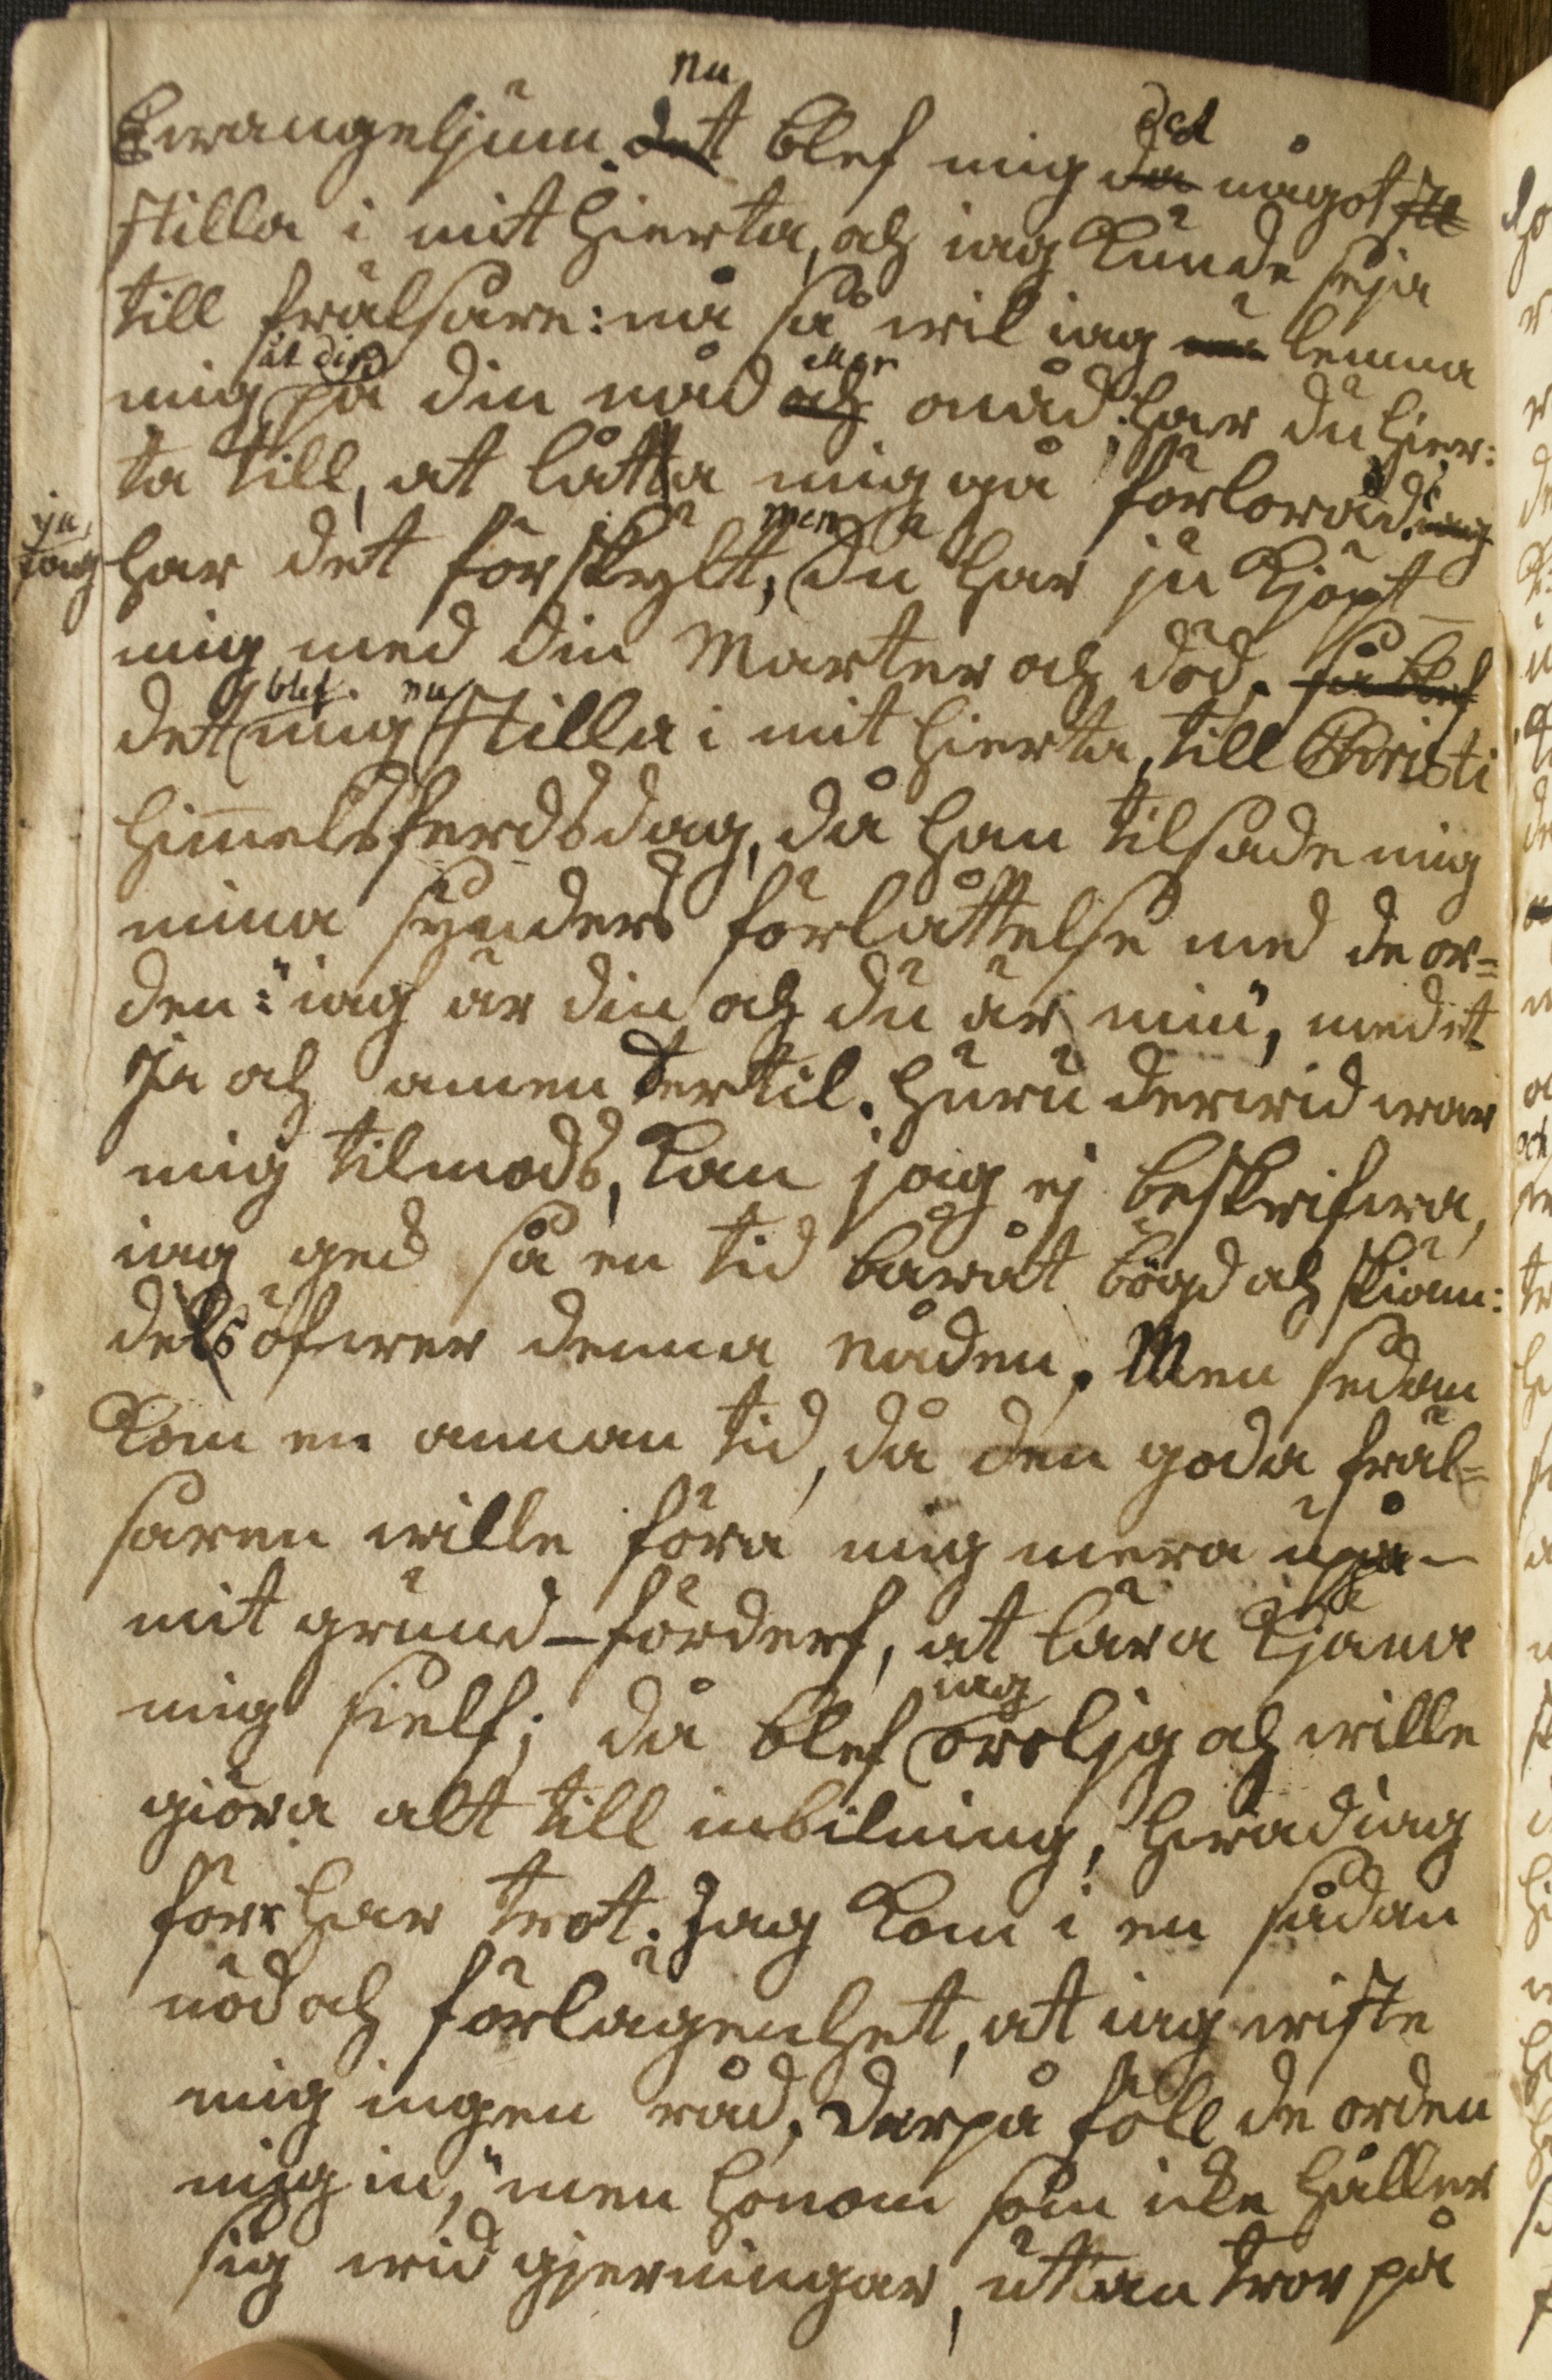 nu det
Ewangeljum. det blef mig da något stl
stilla i mit hierta, och iag kunde seija
till frälsare: nå så wil iag nu lemna
åt dig eller
mig på din nåd och onåd; har du hier:
ta till, at låtta mig gå förlorad? iag
ja, men
iag har det förskylt, du har ju kjöpt
mig med din Marter och död. så blef
blef nu
det mig stilla i mit hierta, till Christi
himmelsferdsdag, då han tilsade mig
mina synders förlåttelse med de or=
den: "iag är din och du är min", med et
Ja och amen dertil. huru derwid war
mig tilmods, kan jag ej beskrifwa,
iag ged så en tid båråt bögd och skiäm:
des öfwer denna nåden. Men sedan
kom en annan tid, då den goda fräl=
saren wille föra mig mera uppå
mit grund-förderf, at lära kjäna
iag
mig sielf; då blef oroljg och wille
giöra alt till inbilning, hwad iag
förr har trot. Jag kom i en sådan
nöd och förlägenhet, at iag wiste
mig ingen råd, derpå föll de orden
mig in, "men honom som icke håller
sig wid gjerningar, uttan tror på